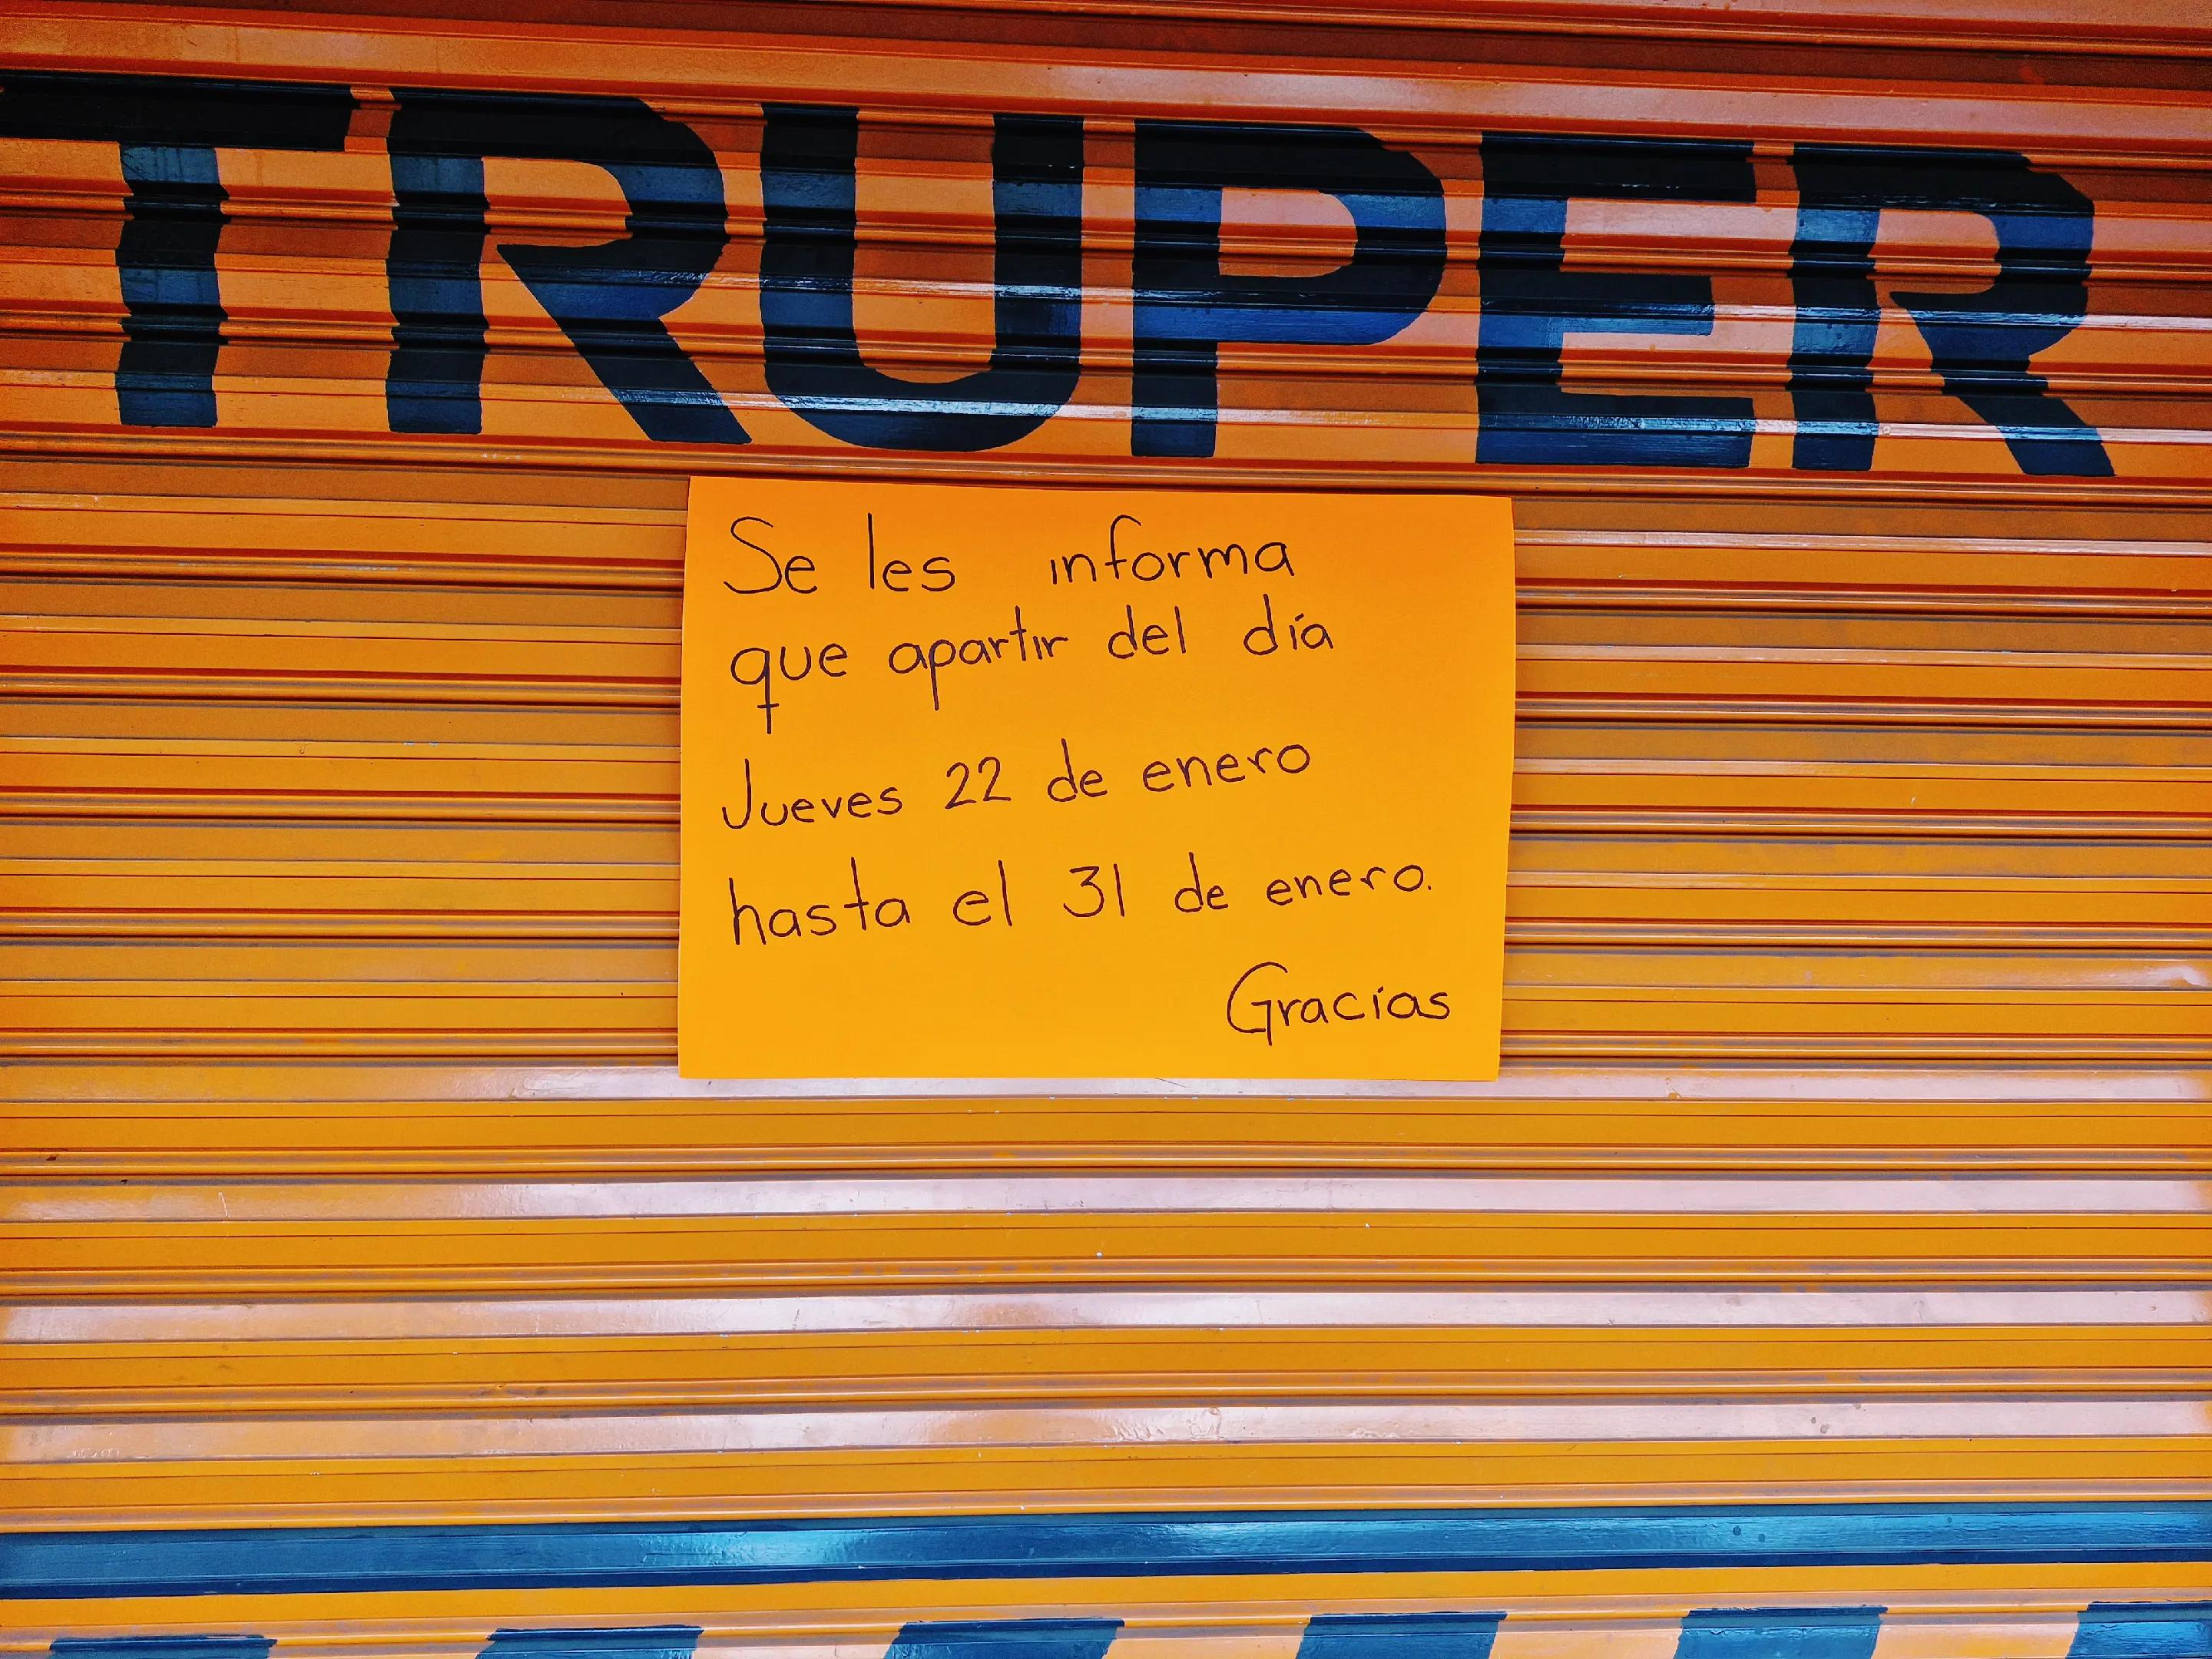 TRUPER
Se les informa
que apartir del día
Jueves 22 de enero
hasta el 31 de enero.
Gracias